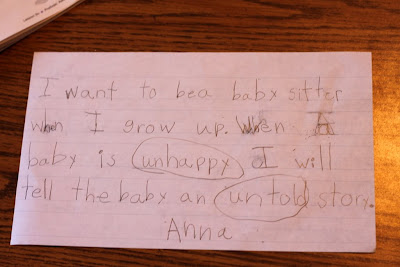 I want to bea baby sitter
when I grow up. When A
baby is unhappy I will
tell the baby an untold story.
Anna